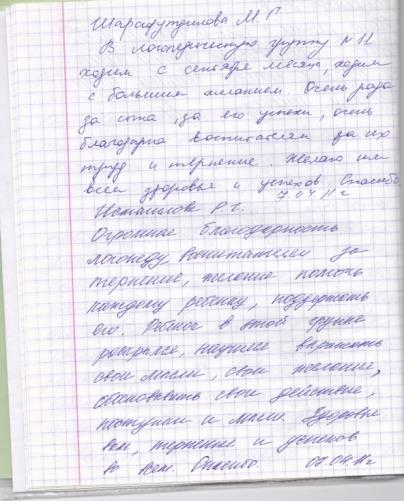 Шарафутдинова М. Г
В логопедическую группу № 11
ходим с сентября месяца, ходим
с большим желанием. Очень рада
за сына, за его успехи, очень
благодарна воспитателям за их
труд и терпение. Желаю им
всем здоровья и успехов Спасибо
7.04.11 г
Исмаилова Р. Г.
Огромная благодарность
логопеду, воспитателям за
терпение, желание помочь
каждому ребенку, поддержать
его. Ребенок в этой группе
раскрылся, научился выражать
свои мысли, свои желания,
свои действие,
поступки и мысли. Здоровья
вам, терпения и успехов
во всем. Спасибо. 07.04.11г